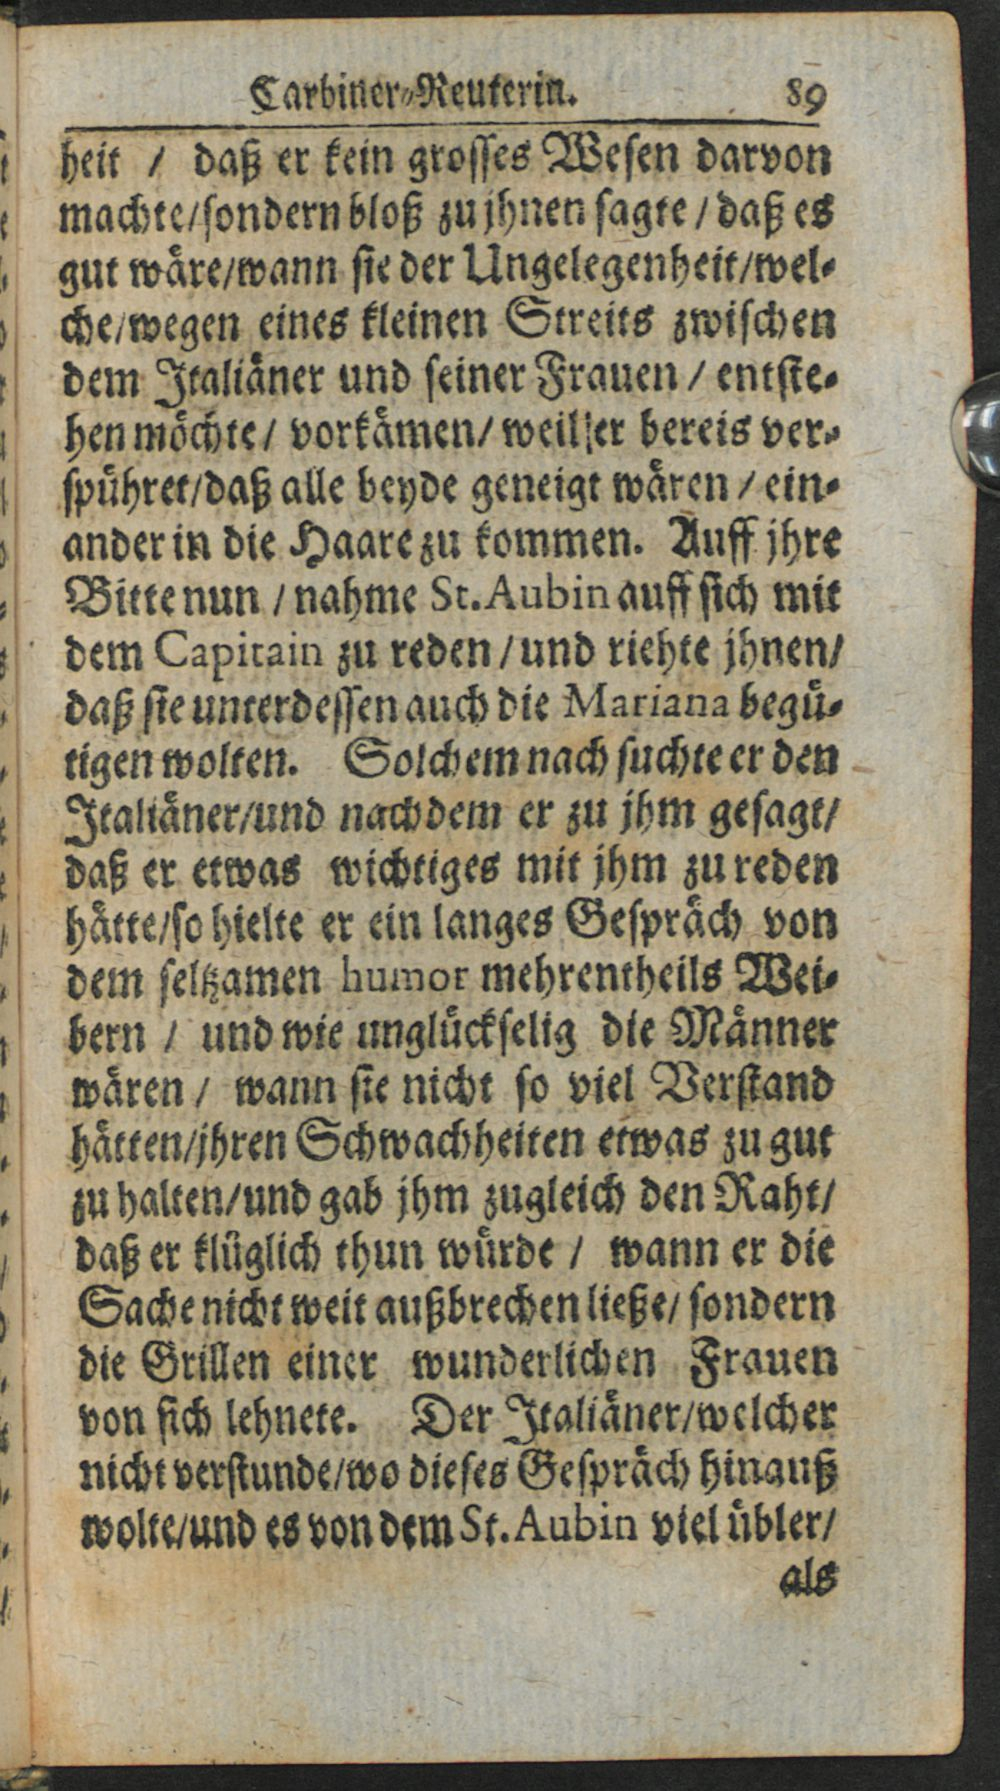 Carbiner-Reuterin. 89
heit / daß er kein grosses Wesen darvon
machte/sondern bloß zu jhnen sagte / daß es
gut wäre/wann sie der Ungelegenheit/wel-
che/wegen eines kleinen Streits zwischen
dem Jtaliäner und seiner Frauen / entste-
hen möchte / vorkämen/ weil er bereis ver-
spühret/daß alle beyde geneigt wären / ein-
ander in die Haare zu kommen. Auff jhre
Bitte nun / nahme St. Aubin auff sich mit
dem Capitain zu reden / und riehte jhnen/
daß sie unterdessen auch die Mariana begü-
tigen wolten. Solchem nach suchte er den
Jtaliäner/und nachdem er zu jhm gesagt/
daß er etwas wichtiges mit jhm zu reden
hätte/so hielte er ein langes Gespräch von
dem seltzamen humor mehrentheils Wei-
bern / und wie unglückselig die Männer
wären / wann sie nicht so viel Verstand
hätten/jhren Schwachheiten etwas zu gut
zu halten/und gab jhm zugleich den Raht/
daß er klüglich thun würde / wann er die
Sache nicht weit außbrechen ließe/ sondern
die Grillen einer wunderlichen Frauen
von sich lehnete. Der Jtaliäner/welcher
nicht verstunde/wo dieses Gespräch hinauß
wolte/und es von dem St. Aubin viel übler/
als